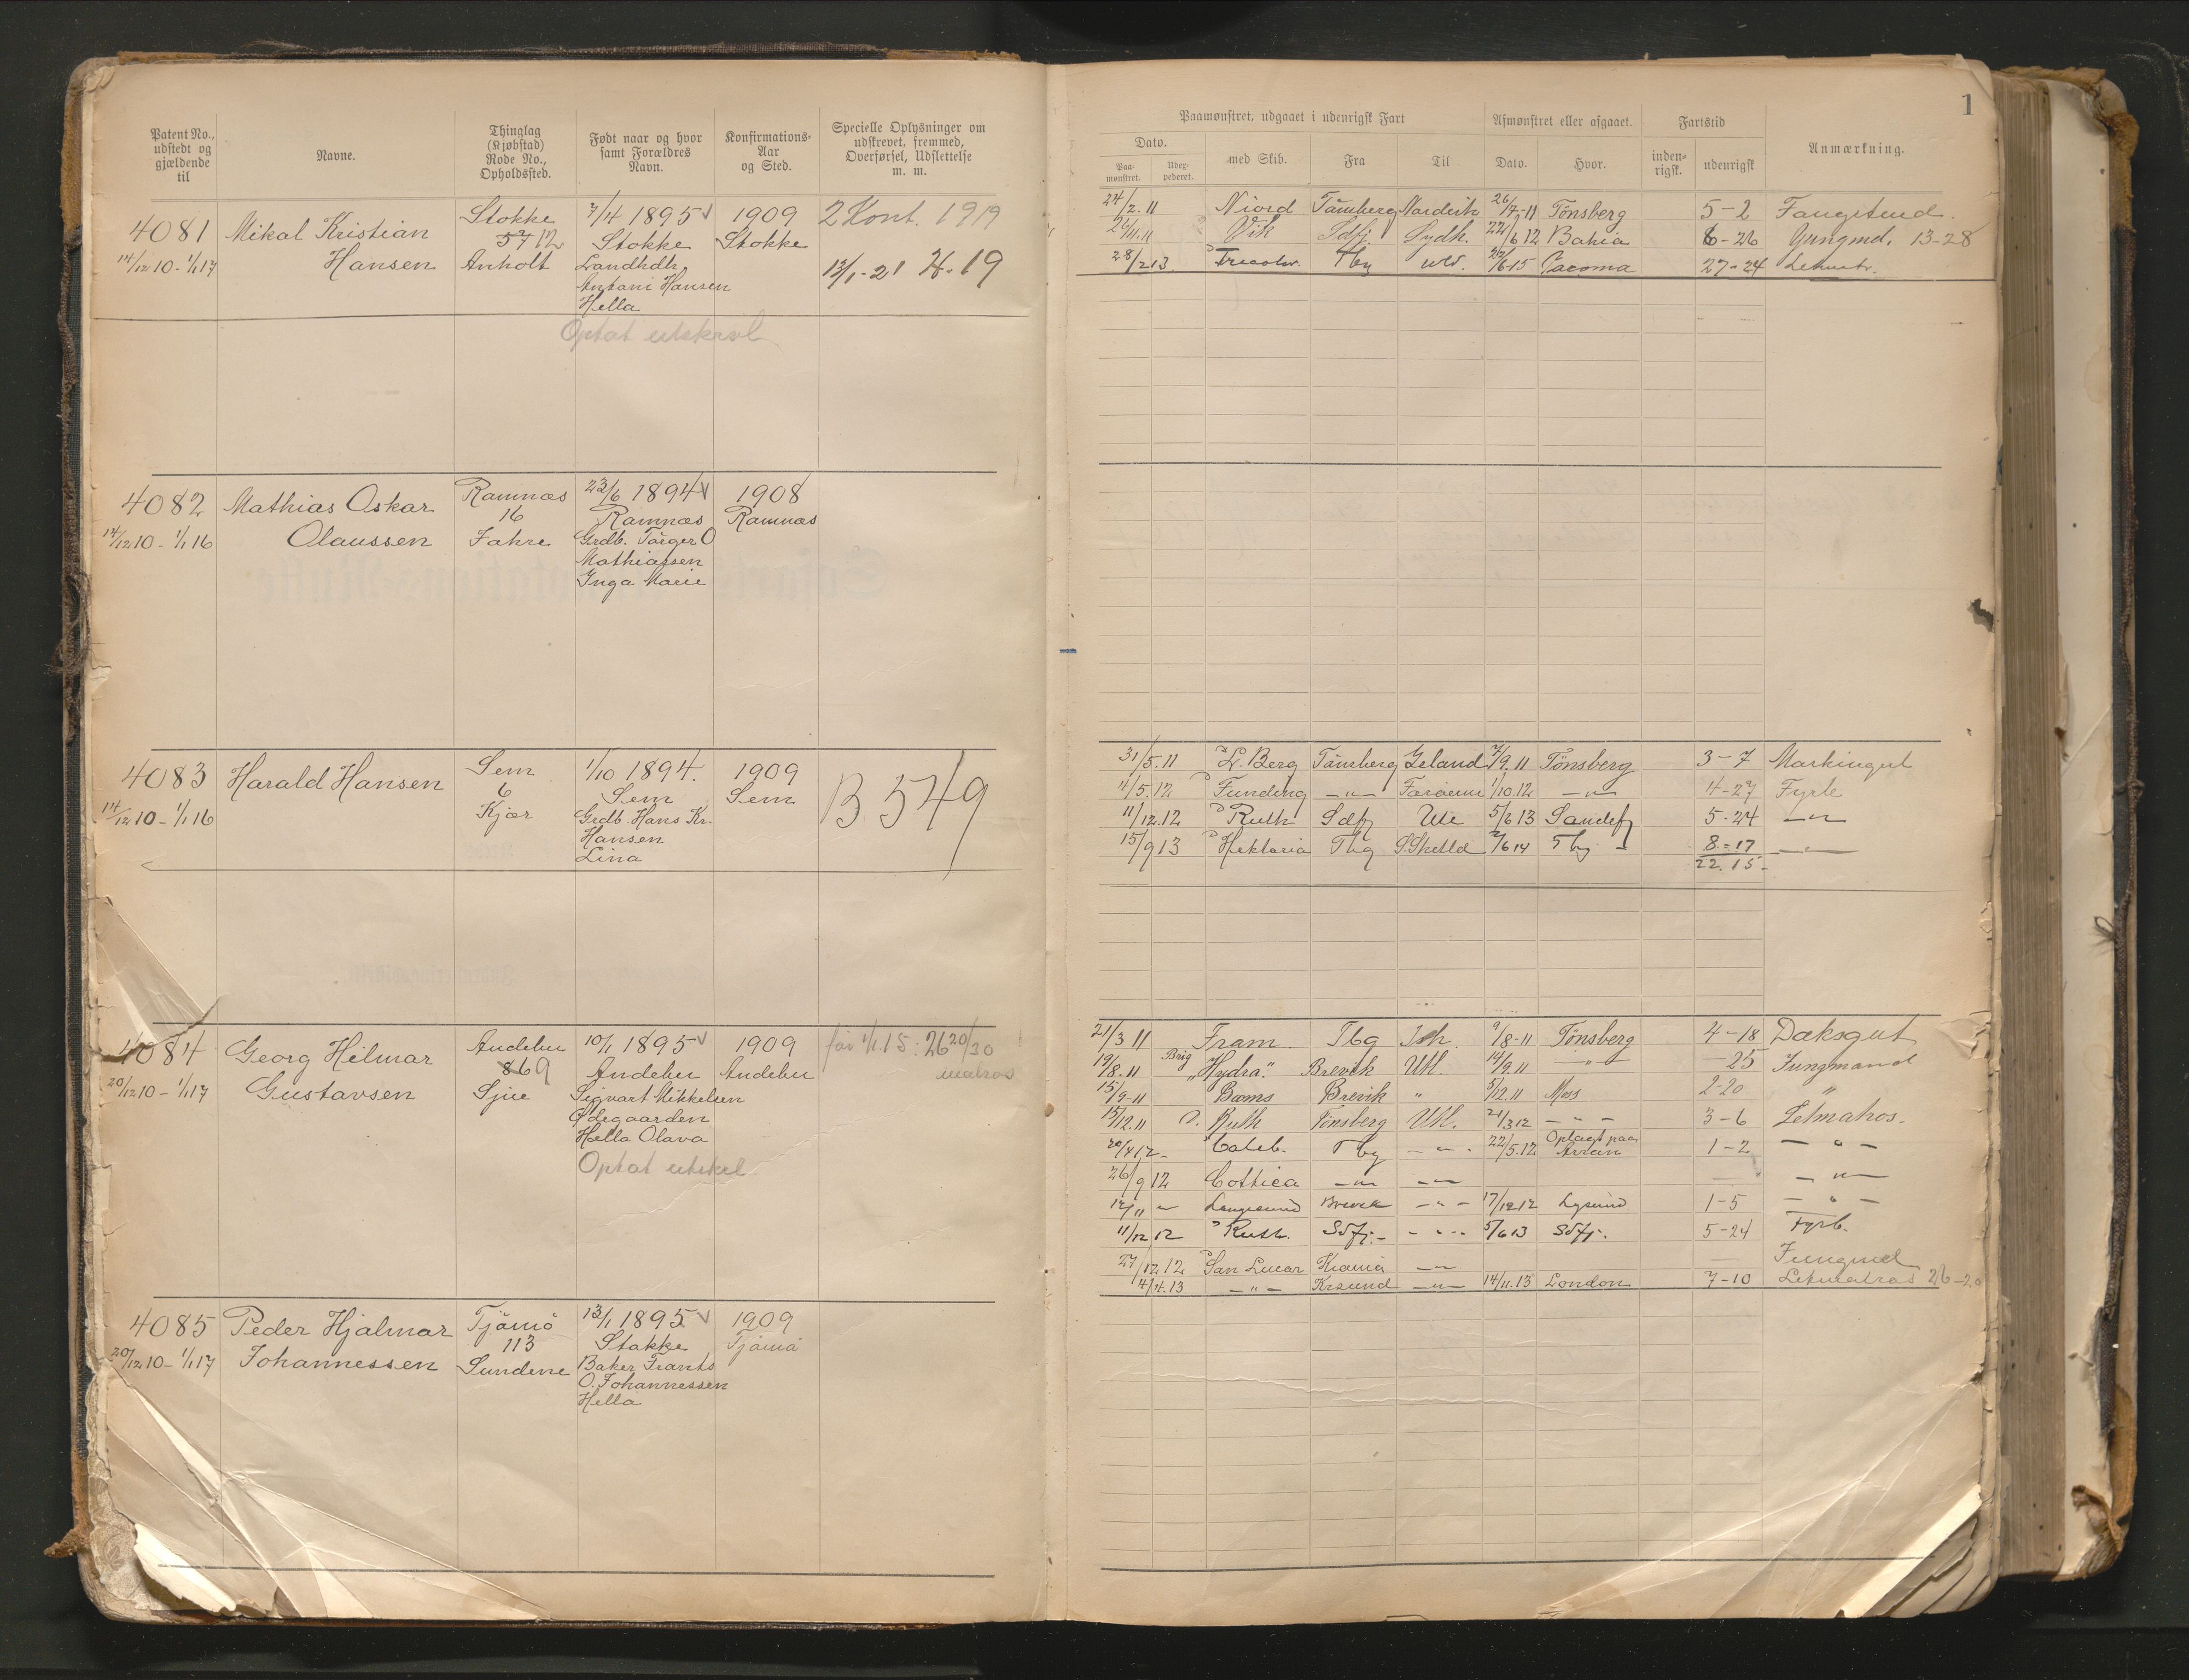 Patent No., udstedt og gjældende til
Navne.
Thinglag (Kjøbstad) Rode No., Opholdssted.
Født naar og hvor samt Forældres Navn.
Konfirmations-Aar og Sted.
Specielle Oplysninger om udskrevet, fremmed, Overførsel, Udslettelse m. m.
4081 Mikal Kristian Stokke 7/4 1895 1909 2 Kont. 1919
57 12 Stokke Stokke
14/12 10 - 1/1 17 Hansen Anholt Landhdlr 12/1-21 H.19
Antoni Hansen
Hella
Optat utskrevl
4082 Mathias Oskar Ramnæs 23/6 1894 1908
16 Ramnæs Ramnæs
14/12 10 - 1/1 16 Olaussen Jahre Grdb. Torger O
Mathiassen
Inga Marie
4083 Harald Hansen Sem 1/10 1894. 1909 B 549
6 Sem Sem
14/12 10 - 1/1 16 Kjær Grdb. Hans Kr.
Hansen
Lina
4084 Georg Hilmar Andebu 10/1 1895 1909 før 1/1 15: 26 20/30
869 Andebu Andebu matros
20/12 10 - 1/1 17 Gustavsen Sjue Sigvart Mikkelsen
Ødegaarden
Hella Olava
Optat utskrl
4085 Peder Hjalmar Tjømø 13/1 1895 1909
113 Stokke Tjømø
20/12 10 - 1/1 17 Johannessen Sundene Baker Frants
O. Johannessen
Hella
1
Paamønstret, udgaaet i udenrigsk Fart
Afmønstret eller afgaaet.
Fartstid
Anmærkning.
Dato.
Paa-mønstret.
Uder-pederet.
med Skib.
Fra
Til
Dato.
Hvor.
inden-rigsk.
udenrigsk
24/2.11 Niord Tønsberg Nordish 26/7-11 Tönsberg 5-2 Fangstmd.
26/11.11 Vik Sdfj. Sydh. 22/6 12 Bahia 6-26 Jungmd. 13-28
28/2 13 Tricolor Tbg utl. 22/6 15 Tacoma 27-24 Letmatr.
31/5.11 L. Berg Tönsberg Island 7/9.11 Tönsberg 3-7 Maskingut
4/5.12 Funding -"- Færöerne 1/10.12 -"- 4-27 Fyrb
11/12.12 Ruth Sdfj Ute 5/6 13 Sandefj 5-24 -"-
15/9 13 Hektoria Tbg S.Shetld 2/6 14 Tbg 8-17 -"-
22.15-
21/3 11 Fram Tbg Ish. 9/8-11 Tönsberg 4-18 Dæksgut
19/8.11 Brig "Hydra." Brevik Utl. 14/9.11 -"- -25 Jungmand
15/9-11 Brevik " 5/12.11 Moss 2-20 "
15/12.11 D. Ruth Tönsberg Utl. 21/3 12 - - 3-6 Letmatros.
20/4 12- Caleb. Tbg -"- 22/5.12 Oplagt paa 1-2 - " -
26/9 12 Cottica -"- -"- -"-
12/11 " Langesund Brevik -"- 17/12 12 Lysund 1-5 - " -
11/12 12 Ruth. Sdfj.- -"- 5/6 13 Sdfj. 5-24 Fyrb.
27/12.12 San Lucar Krania -"- Jungmd
4/4.13 -"- Krsund -"- 14/11.13 London 7-10 Letmatros 26-20